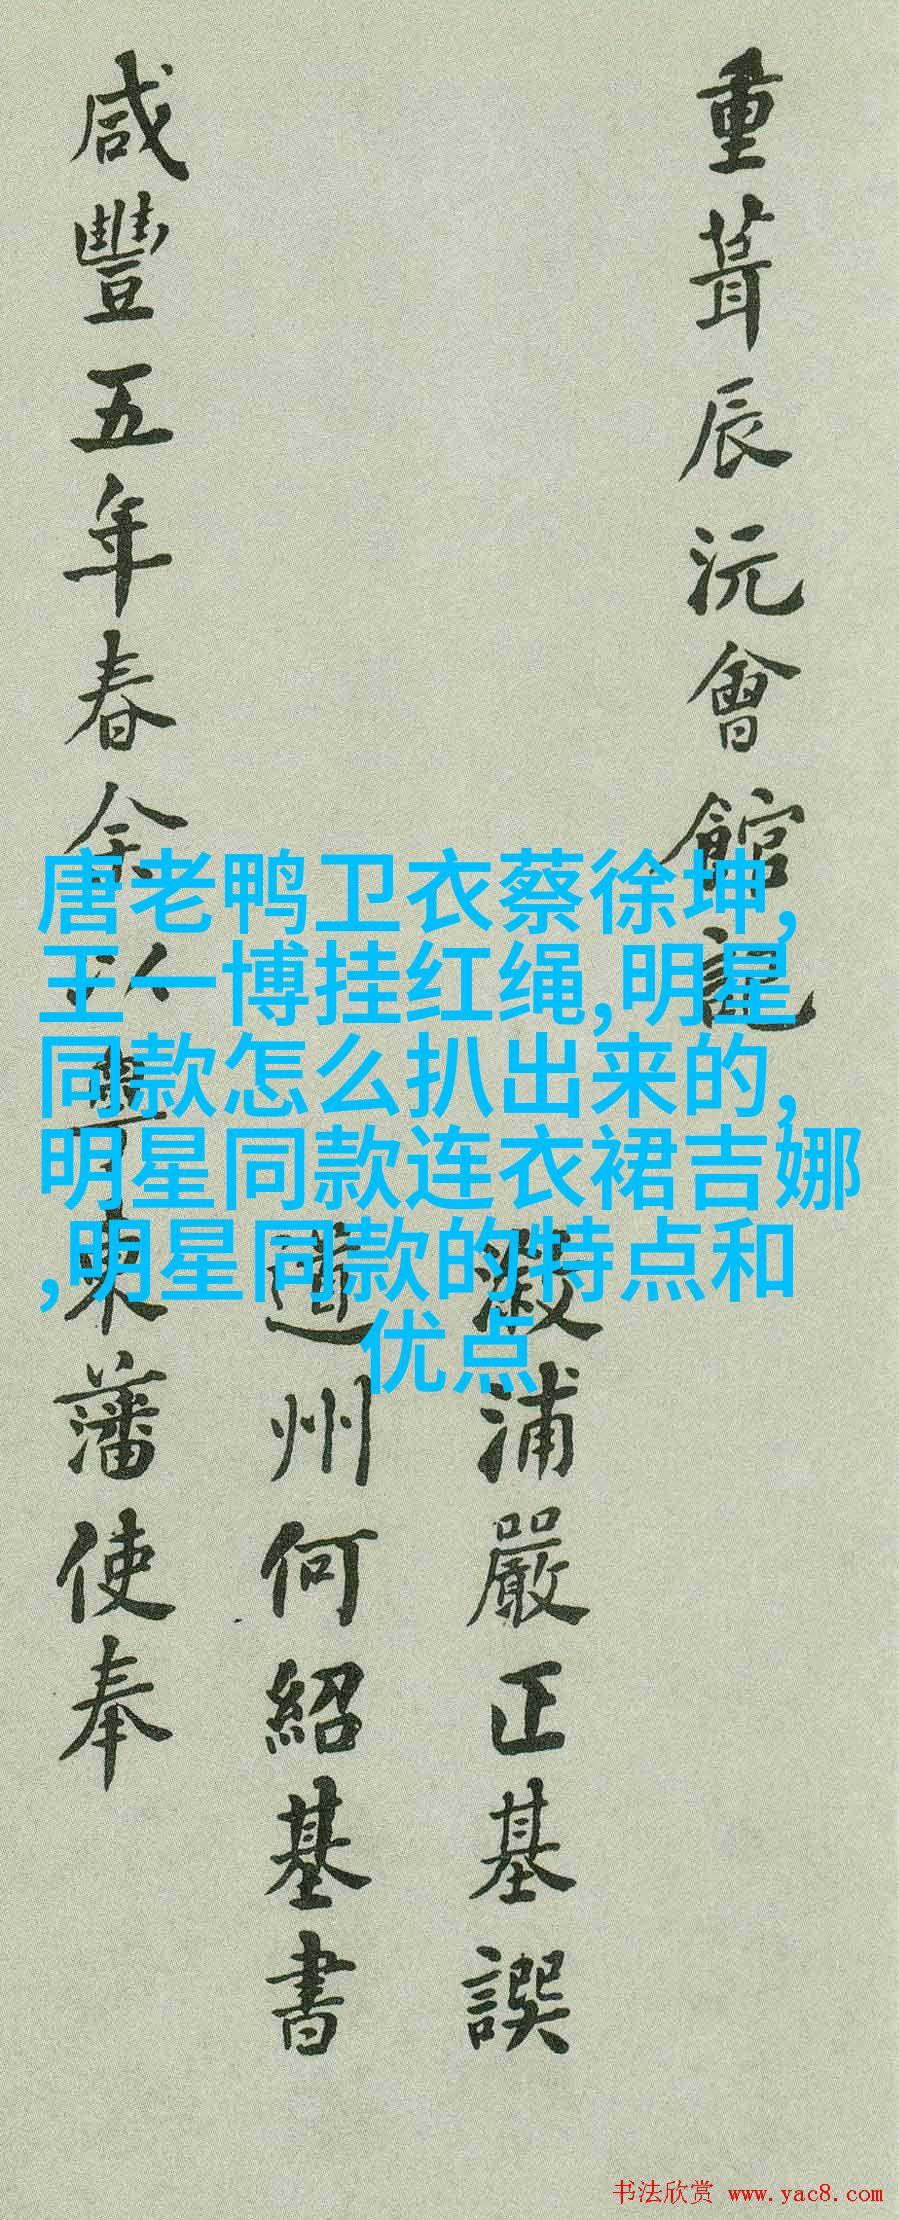 重葺辰沅會館記
漵浦嚴正基譔
道州何紹基書
咸豐五年春余以粵東藩使奉
唐老鸭卫衣蔡徐坤,
王一博挂红绳,明星
同款怎么扒出来的,
明星同款连衣裙吉娜
,明星同款的特点和
优点
书法欣赏 www.yac8.com